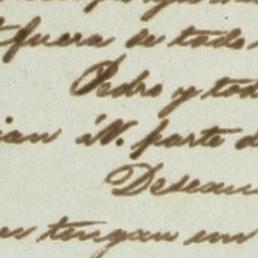 fuera de todo
Pedro y tod
ian á V. parte d
Desean
tengan un